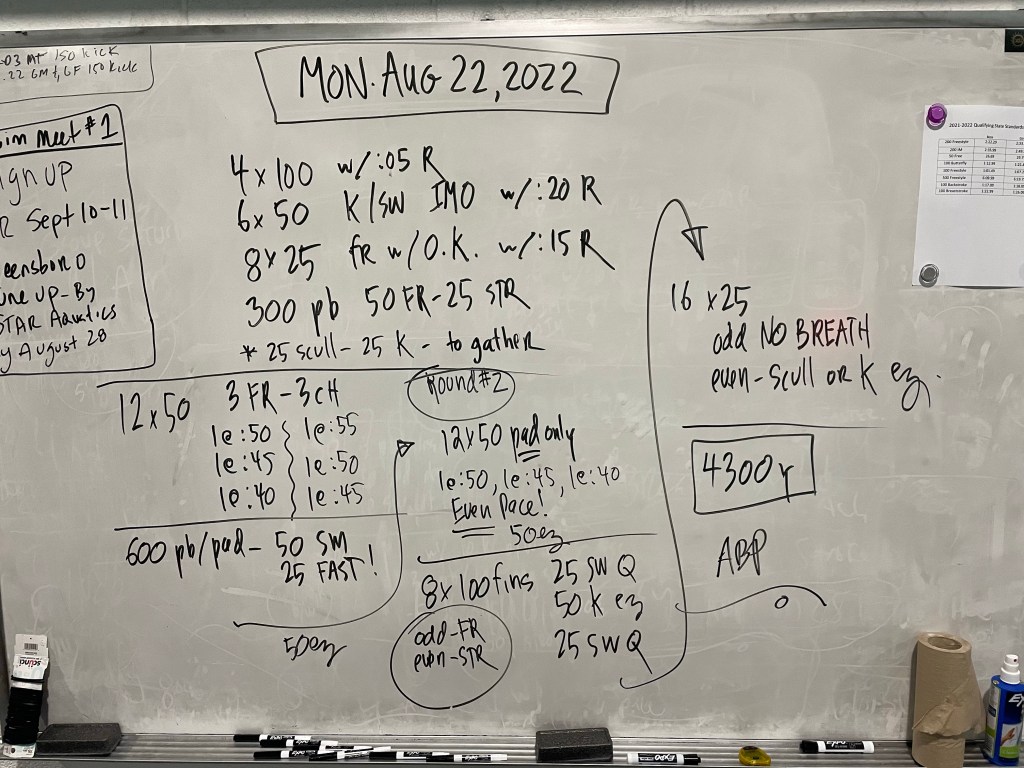 :03 MT 150 kick
.22 GMT, GF 150 kick
Meet #1
ign up
R Sept 10-11
eensboro
une up-By
STAR Aquatics
y August 28
MON. AUG 22, 2022
4x100 w/:05 R
6x50 K/SW IMO w/:20 R
8x25 fR w/O.K. w/:15 R
300 pb 50 FR-25 STR
* 25 scull-25 K-to gather
12x50 3 FR-3CH
1@:50 { 1@:55
1@:45 1@:50
1@:40 1@:45
600 pb/pad- 50 SM
25 FAST!
50ez
Round #2
12x50 pad only
1@:50, 1@:45, 1@:40
Even Pace!
50ez
8x100 fins 25 SW Q
50 K ez
25 SW Q
odd-FR
even-STR
16 x25
odd NO BREATH
even-Scull or K ez.
4300y
ABP
2021-2022 Qualifying State Standards
200 Freestyle
200 IM
50 Free
100 Butterfly
100 Freestyle
500 Freestyle
100 Backstroke
100 Breaststroke
EXPO